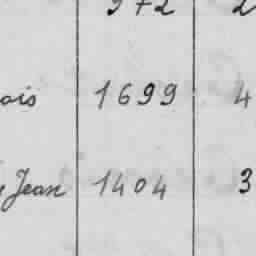 972 2
ois 1699 4
Jean 1404 3